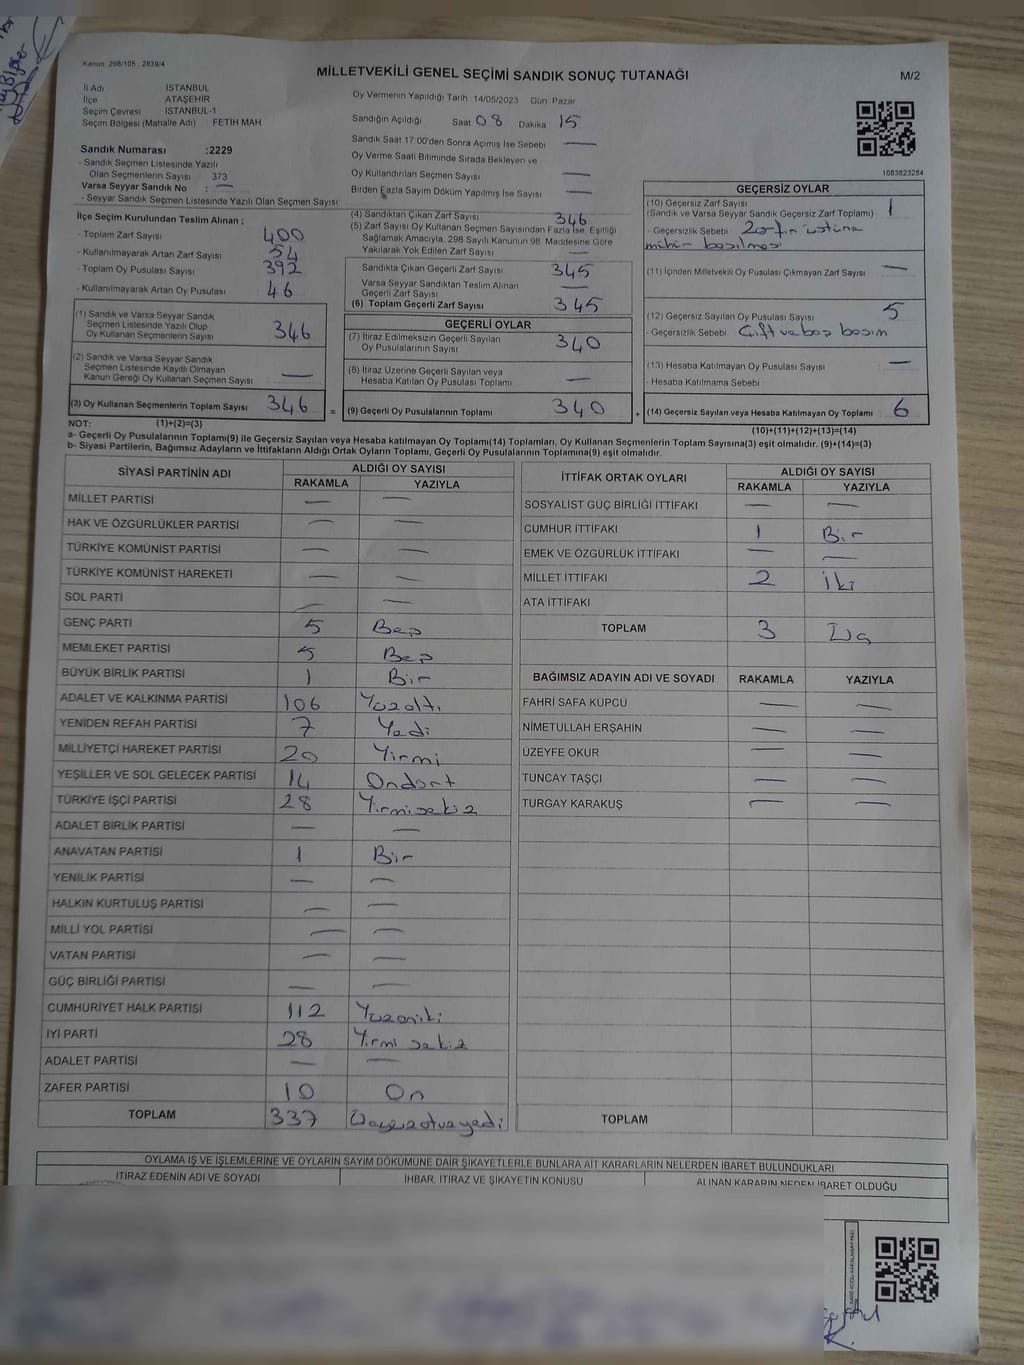 Kanun: 298/105 : 2839/4
MİLLETVEKİLİ GENEL SEÇİMİ SANDIK SONUÇ TUTANAĞI
M/2
İl Adı İSTANBUL
İlçe ATAŞEHİR
Seçim Çevresi İSTANBUL-1
Seçim Bölgesi (Mahalle Adı) FETİH MAH
Sandık Numarası :2229
- Sandık Seçmen Listesinde Yazılı
Olan Seçmenlerin Sayısı 373
Varsa Seyyar Sandık No : —
- Seyyar Sandık Seçmen Listesinde Yazılı Olan Seçmen Sayısı
Oy Vermenin Yapıldığı Tarih 14/05/2023 Gün Pazar
Sandığın Açıldığı Saat 08 Dakika 15
Sandık Saat 17:00'den Sonra Açımış İse Sebebi —
Oy Verme Saati Bitiminde Sırada Bekleyen ve
Oy Kullandırılan Seçmen Sayısı —
Birden Fazla Sayım Döküm Yapılmış İse Sayısı —
1083823284
İlçe Seçim Kurulundan Teslim Alınan ;
- Toplam Zarf Sayısı 400
- Kullanılmayarak Artan Zarf Sayısı 54
- Toplam Oy Pusulası Sayısı 392
- Kullanılmayarak Artan Oy Pusulası 46
(1) Sandık ve Varsa Seyyar Sandık
Seçmen Listesinde Yazılı Olup
Oy Kullanan Seçmenlerin Sayısı 346
(2) Sandık ve Varsa Seyyar Sandık
Seçmen Listesinde Kayıtlı Olmayan
Kanun Gereği Oy Kullanan Seçmen Sayısı —
(3) Oy Kullanan Seçmenlerin Toplam Sayısı 346 =
(4) Sandıktan Çıkan Zarf Sayısı 346
(5) Zarf Sayısı Oy Kullanan Seçmen Sayısından Fazla İse, Eşitliği
Sağlamak Amacıyla, 298 Sayılı Kanunun 98. Maddesine Göre
Yakılarak Yok Edilen Zarf Sayısı —
Sandıkta Çıkan Geçerli Zarf Sayısı 345
Varsa Seyyar Sandıktan Teslim Alınan
Geçerli Zarf Sayısı —
(6) Toplam Geçerli Zarf Sayısı 345
GEÇERLİ OYLAR
(7) İtiraz Edilmeksizin Geçerli Sayılan
Oy Pusulalarının Sayısı 340
(8) İtiraz Üzerine Geçerli Sayılan veya
Hesaba Katılan Oy Pusulası Toplamı —
(9) Geçerli Oy Pusulalarının Toplamı 340 +
GEÇERSİZ OYLAR
(10) Geçersiz Zarf Sayısı 1
(Sandık ve Varsa Seyyar Sandık Geçersiz Zarf Toplamı)
- Geçersizlik Sebebi Zarfın üstüne
mühür basılması
(11) İçinden Milletvekili Oy Pusulası Çıkmayan Zarf Sayısı —
(12) Geçersiz Sayılan Oy Pusulası Sayısı 5
- Geçersizlik Sebebi Çift ve boş basım
(13) Hesaba Katılmayan Oy Pusulası Sayısı —
- Hesaba Katılmama Sebebi
(14) Geçersiz Sayılan veya Hesaba Katılmayan Oy Toplamı 6
NOT: (1)+(2)=(3)
(10)+(11)+(12)+(13)=(14)
a- Geçerli Oy Pusulalarının Toplamı(9) ile Geçersiz Sayılan veya Hesaba katılmayan Oy Toplamı(14) Toplamları, Oy Kullanan Seçmenlerin Toplam Sayısına(3) eşit olmalıdır. (9)+(14)=(3)
b- Siyasi Partilerin, Bağımsız Adayların ve İttifakların Aldığı Ortak Oyların Toplamı, Geçerli Oy Pusulalarının Toplamına(9) eşit olmalıdır.
SİYASİ PARTİNİN ADI ALDIĞI OY SAYISI
RAKAMLA YAZIYLA
MİLLET PARTİSİ — —
HAK VE ÖZGÜRLÜKLER PARTİSİ — —
TÜRKİYE KOMÜNİST PARTİSİ — —
TÜRKİYE KOMÜNİST HAREKETİ — —
SOL PARTİ — —
GENÇ PARTİ 5 Beş
MEMLEKET PARTİSİ 5 Beş
BÜYÜK BİRLİK PARTİSİ 1 Bir
ADALET VE KALKINMA PARTİSİ 106 Yüzaltı
YENİDEN REFAH PARTİSİ 7 Yedi
MİLLİYETÇİ HAREKET PARTİSİ 20 Yirmi
YEŞİLLER VE SOL GELECEK PARTİSİ 14 Ondört
TÜRKİYE İŞÇİ PARTİSİ 28 Yirmisekiz
ADALET BİRLİK PARTİSİ — —
ANAVATAN PARTİSİ 1 Bir
YENİLİK PARTİSİ — —
HALKIN KURTULUŞ PARTİSİ — —
MİLLİ YOL PARTİSİ — —
VATAN PARTİSİ — —
GÜÇ BİRLİĞİ PARTİSİ — —
CUMHURİYET HALK PARTİSİ 112 Yüzoniki
İYİ PARTİ 28 Yirmi sekiz
ADALET PARTİSİ — —
ZAFER PARTİSİ 10 On
TOPLAM 337 Üçyüzotuzyedi
İTTİFAK ORTAK OYLARI ALDIĞI OY SAYISI
RAKAMLA YAZIYLA
SOSYALİST GÜÇ BİRLİĞİ İTTİFAKI — —
CUMHUR İTTİFAKI 1 Bir
EMEK VE ÖZGÜRLÜK İTTİFAKI — —
MİLLET İTTİFAKI 2 İki
ATA İTTİFAKI
TOPLAM 3 Üç
BAĞIMSIZ ADAYIN ADI VE SOYADI RAKAMLA YAZIYLA
FAHRİ SAFA KÜPCÜ — —
NİMETULLAH ERŞAHİN — —
ÜZEYFE OKUR — —
TUNCAY TAŞÇI — —
TURGAY KARAKUŞ — —
TOPLAM
OYLAMA İŞ VE İŞLEMLERİNE VE OYLARIN SAYIM DÖKÜMÜNE DAİR ŞİKAYETLERLE BUNLARA AİT KARARLARIN NELERDEN İBARET BULUNDUKLARI
İTİRAZ EDENİN ADI VE SOYADI İHBAR, İTİRAZ VE ŞİKAYETİN KONUSU ALINAN KARARIN NEDEN İBARET OLDUĞU